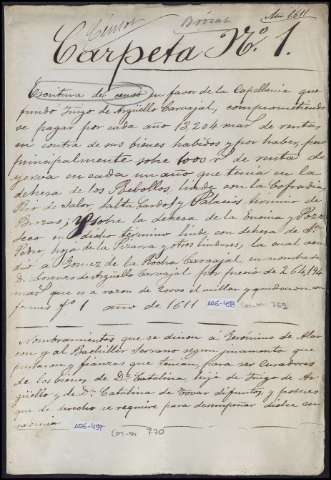 Censos Brozas Año 1611
Carpeta Nº 1.
Escritura de censo en favor de la Capellanía que
fundó Iñigo de Argüello Carvajal, comprometiéndose
a pagar por cada año 13,204 mas. de renta,
en contra de sus bienes habidos y por haber, y
principalmente sobre 1000 rs. de renta de
yerva en cada un año que tenía en la
dehesa de los Rebollos, linde con la Cofradía
Rio de Salor, término de
Brozas; y sobre la dehesa de la
en dicho término linde con dehesa de
hoja de la Pizarra y otros linderos, la cual
dió a Gomez de la Rocha Carvajal, en nombre
de Lorenzo de Argüello Carvajal por precio de 264,194
mas. que es a razon de el millar y quedaron con-
formes fº 1 año de 1611 AG6-498 759
Nombramientos que se dieron á Geronimo de Alar
con y al Bachiller Serrano según juramento que
prestaron y fianzas que tenían para ser Curadores
de los bienes de Dª Catalina, hija de Iñigo de Ar
güello y de Dª Catalina de Tovar difuntos, y poderes
que de derecho se requiere para desempeñar dicha cu-
raduria AG6-497 770